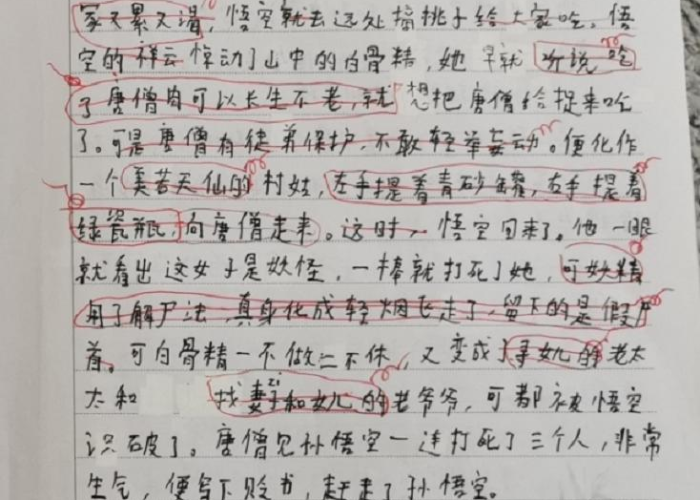 家又累又渴，悟空就去远处摘桃子给大家吃。悟
空的祥云惊动了山中的白骨精，她早就听说吃
了唐僧肉可以长生不老，就想把唐僧给捉来吃
了。可是唐僧有徒弟保护，不敢轻举妄动。便化作
一个美若天仙的村姑，左手提着青砂罐，右手提着
绿瓷瓶，向唐僧走来。这时，悟空回来了。他一眼
就看出这女子是妖怪，一棒就打死了她，可妖精
用了解尸法，真身化成轻烟飞走了，留下的是假尸
首。可白骨精一不做二不休，又变成寻女儿的老太
太和 找妻子和女儿的老爷爷，可都被悟空
识破了。唐僧见孙悟空一连打死了三个人，非常
生气，便写下贬书，赶走了孙悟空。